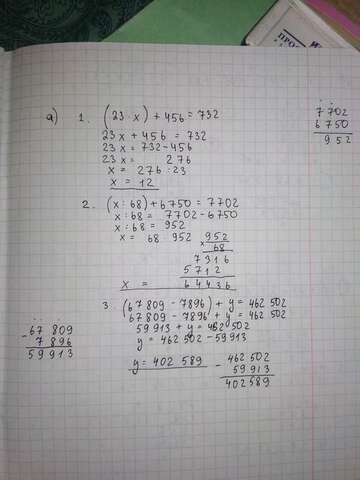 ПРОС
а) 1. (23 · x) + 456 = 732
23x + 456 = 732
23x = 732 - 456
23x = 276
x = 276 : 23
x = 12
7702
6750
952
2. (x : 68) + 6750 = 7702
x : 68 = 7702 - 6750
x : 68 = 952
x = 68 · 952
× 952
68
7316
5712
x = 64436
3. (67809 - 7896) + y = 462502
67809 - 7896 + y = 462502
59913 + y = 462502
y = 462502 - 59913
y = 402589
- 67809
7896
59913
- 462502
59913
402589